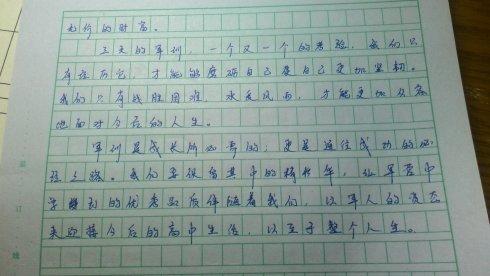 无价的财富。
三天的军训，一个又一个的考验，我们只
有挺而它，才能够磨砺自己是自己更加坚韧。
我们只有战胜困难，水火风雨，才能更加从容
地面对今后的人生。
军训是成长所必要的，更是通往成功的必
经之路。我们要保留其中的精华，从军营中
学到的优秀品质伴随着我们，以军人的姿态
来迎接今后的高中生活，以至于整个人生。
装
订
线